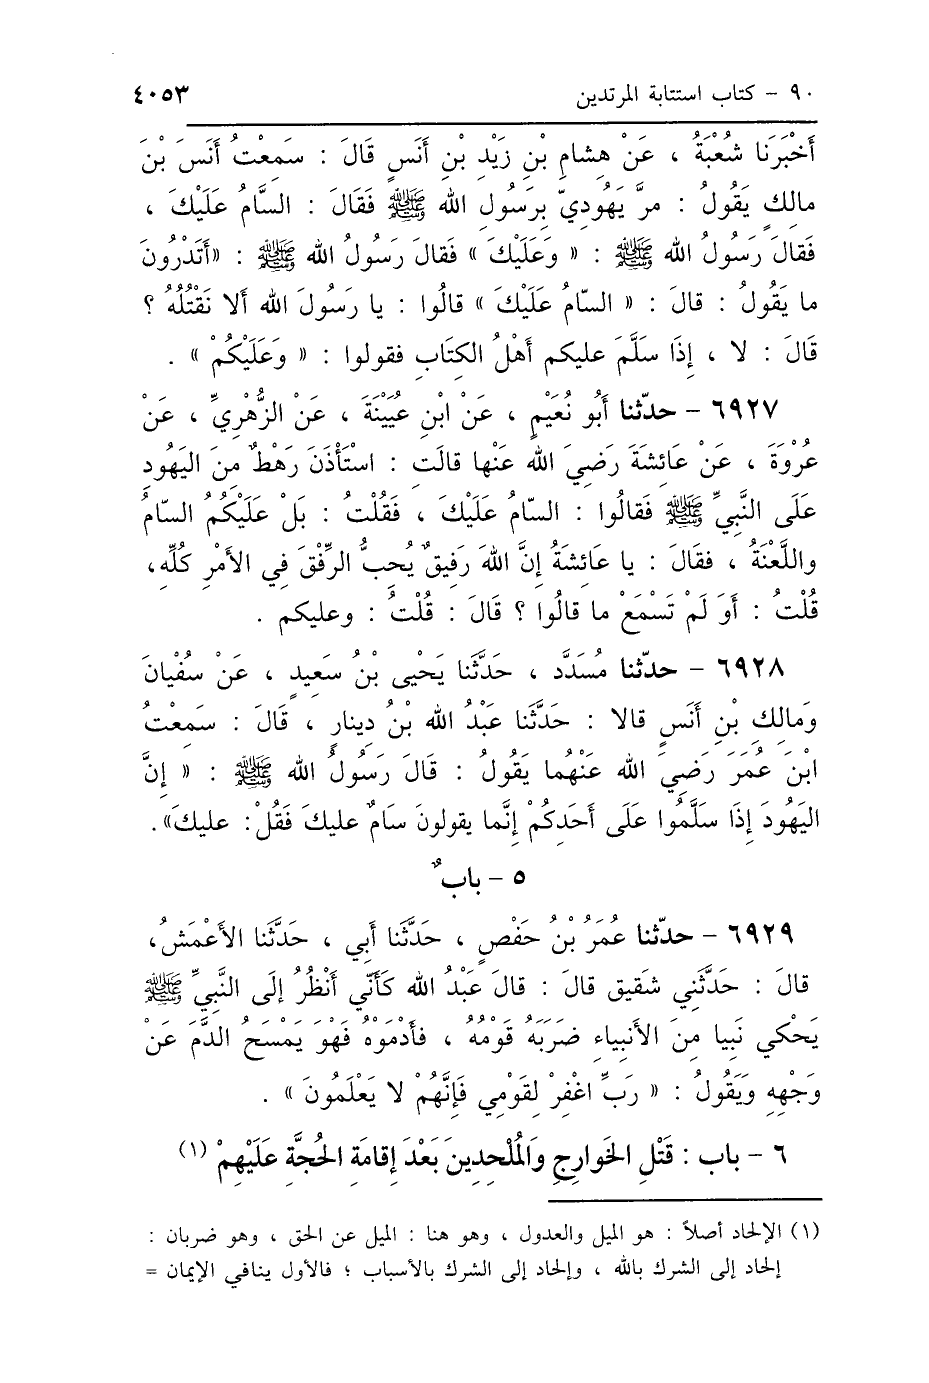 ٩٠ - كتاب استتابة المرتدين ٤٠٥٣
أَخْبَرَنَا شُعْبَةُ ، عَنْ هِشامِ بْنِ زَيْدِ بْنِ أَنَسٍ قَالَ : سَمِعْتُ أَنَسَ بْنَ
مالكٍ يَقُولُ : مرَّ يَهُوديّ بِرَسُولِ الله ﷺ فَقَالَ : السَّامُ عَلَيْكَ ،
فَقَالَ رَسُولُ الله ﷺ : « وَعَلَيْكَ » فَقَالَ رَسُولُ الله ﷺ : «أَتَدْرُونَ
ما يَقُولُ : قالَ : « السّامُ عَلَيْكَ » قالُوا : يا رَسُولَ الله أَلا نَقْتُلُهُ ؟
قَالَ : لا ، إِذَا سَلَّمَ عليكم أَهْلُ الكِتَابِ فقولوا : « وَعَلَيْكُمْ » .
٦٩٢٧ - حدّثنا أَبُو نُعَيْمٍ ، عَنْ ابْنِ عُيَيْنَةَ ، عَنْ الزُّهْرِيِّ ، عَنْ
عُرْوَةَ ، عَنْ عائِشَةَ رَضِيَ الله عَنْها قالَت : اسْتَأْذَنَ رَهْطٌ مِنَ اليَهُودِ
عَلَى النَّبِيِّ ﷺ فَقالُوا : السّامُ عَلَيْكَ ، فَقُلْتُ : بَلْ عَلَيْكُم السّامُ
واللَّعْنَةُ ، فقَالَ : يا عَائِشَةُ إِنَّ اللهَ رَفِيقٌ يُحِبُّ الرِّفْقَ فِي الأَمْرِ كُلِّهِ،
قُلْتُ : أَوَ لَمْ تَسْمَعْ ما قالُوا ؟ قَالَ : قُلْتُ : وعليكم .
٦٩٢٨ - حدّثنا مُسَدَّد ، حَدَّثَنا يَحْيى بْنُ سَعِيدٍ ، عَنْ سُفْيانَ
وَمالِكِ بْنِ أَنَسٍ قالا : حَدَّثَنا عَبْدُ الله بْنُ دِينارٍ ، قَالَ : سَمِعْتُ
ابْنَ عُمَرَ رَضِيَ الله عَنْهُما يَقُولُ : قَالَ رَسُولُ الله ﷺ : « إِنَّ
اليَهُودَ إِذَا سَلَّمُوا عَلَى أَحَدِكُمْ إِنَّما يقولونَ سَامٌ عليكَ فَقُلْ: عليكَ» .
٥ - بابٌ
٦٩٢٩ - حدّثنا عُمَرُ بْنُ حَفْصٍ ، حَدَّثَنا أَبي ، حَدَّثَنا الأَعْمَشُ،
قالَ : حَدَّثَنِي شقيق قالَ : قالَ عَبْدُ الله كَأَنّي أَنْظُرُ إِلَى النَّبِيِّ ﷺ
يَحْكي نَبِيا مِنَ الأَنبِياءِ ضَرَبَهُ قَوْمُهُ ، فأَدْمَوْهُ فَهْوَ يَمْسَحُ الدَّمَ عَنْ
وَجْهِهِ وَيَقُولُ : « رَبِّ اغْفِرْ لِقَوْمِي فَإِنَّهُمْ لا يَعْلَمُونَ » .
٦ - باب : قَتْلِ الخَوارِجِ وَالْمُلْحِدِينَ بَعْدَ إِقامَةِ الحُجَّةِ عَلَيْهِمْ (١)
(١) الإلحاد أصلاً : هو الميل والعدول ، وهو هنا : الميل عن الحق ، وهو ضربان :
إلحاد إلى الشرك بالله ، وإلحاد إلى الشرك بالأسباب ؛ فالأول ينافي الإيمان =